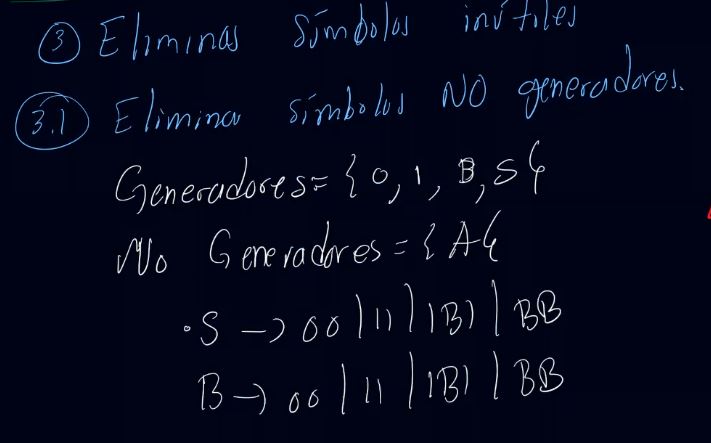 ③ Eliminas símbolos inútiles
3.1 Elimina símbolos NO generadores.
Generadores = { 0, 1, B, S }
No Generadores = { A }
· S → 00 | 11 | 1B1 | BB
B → 00 | 11 | 1B1 | BB